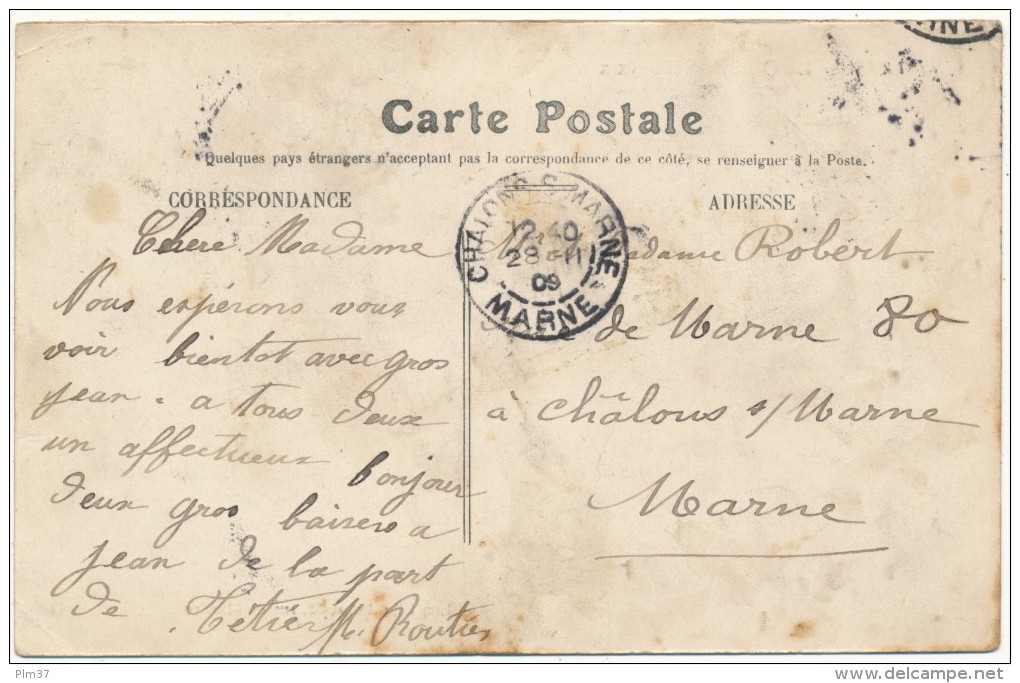 MARNE
Carte Postale
Quelques pays étrangers n'acceptant pas la correspondance de ce côté, se renseigner à la Poste.
CORRESPONDANCE
ADRESSE
CHALONS S. MARNE
12.40
28-11
09
MARNE
Chere Madame
Nous espérons vous
voir bientot avec gros
jean. a tous deux
un affectueux bonjour
deux gros baisers a
jean de la part
de
M. Routier
Madame Robert
de Marne 80
à Châlons s/ Marne
Marne
Plm37
delcampe.net